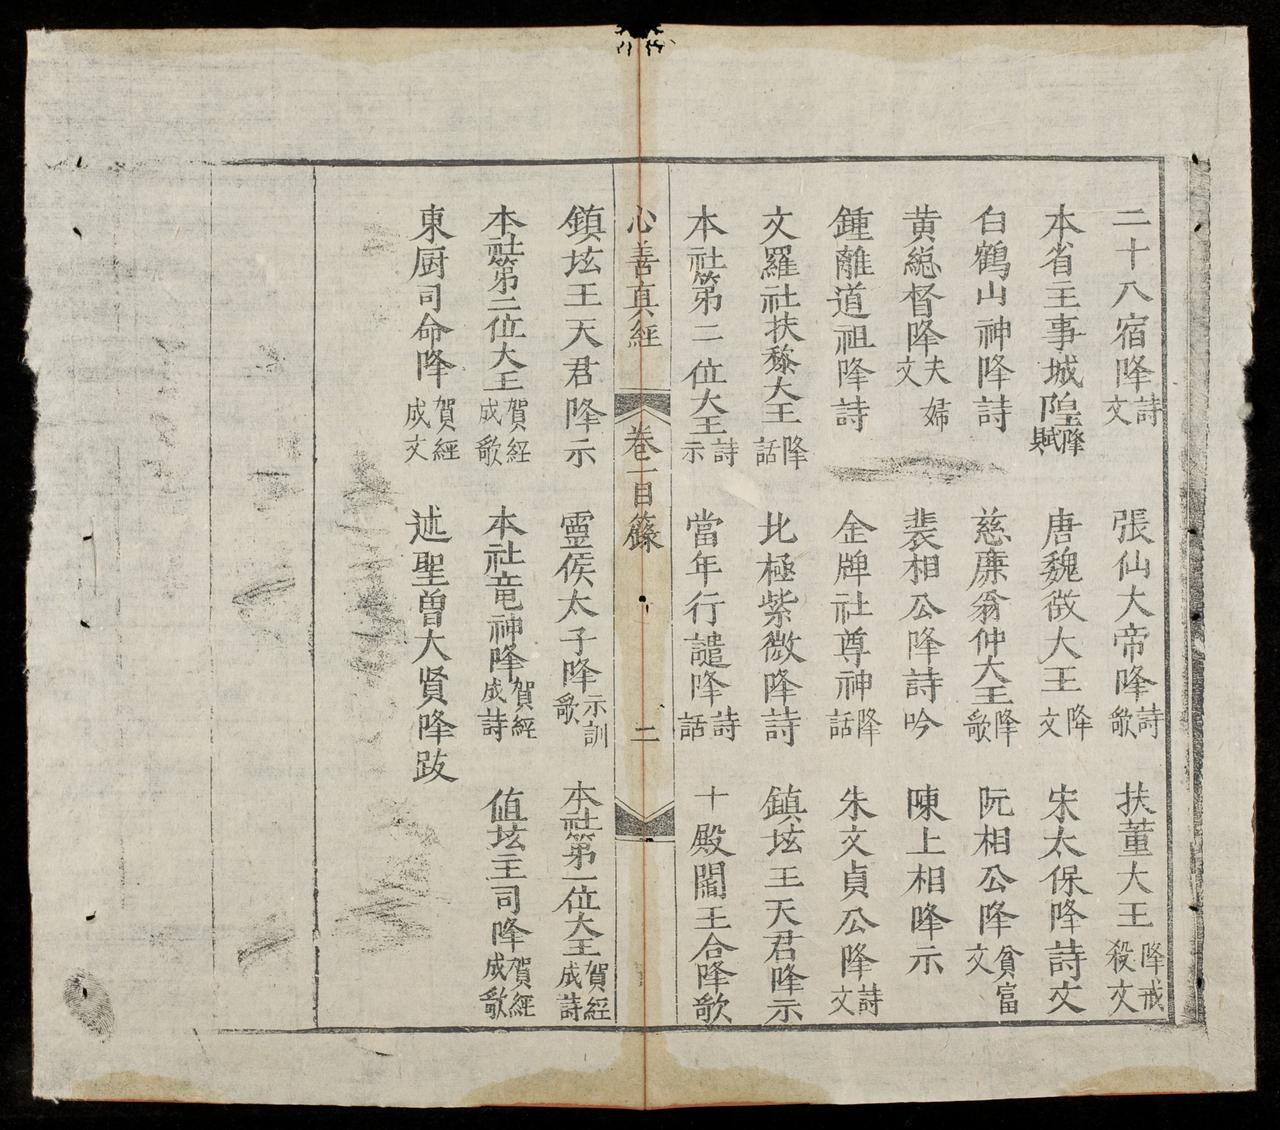 二十八宿降詩文 張仙大帝降詩歌 扶董大王降戒殺文
本省主事城隍降賦 唐魏徴大王降文 宋太保降詩文
白鶴山神降詩 慈廉翁仲大王降歌 阮相公降貧富文
黄総督降夫婦文 裴相公降詩吟 陳上相降示
鍾離道祖降詩 金牌社尊神降話 朱文貞公降詩文
文羅社扶黎大王降話 北極紫微降詩 鎮坛王天君降示
本社第二位大王詩示 當年行譴降詩話 十殿閻王合降歌
心善真經 卷一目籙 二
鎮坛王天君降示 靈侯太子降示訓歌 本社第一位大王賀經成詩
本社第二位大王賀經成歌 本社竜神降賀經成詩 值坛主司降賀經成歌
東厨司命降賀經成文 述聖曾大賢降跋